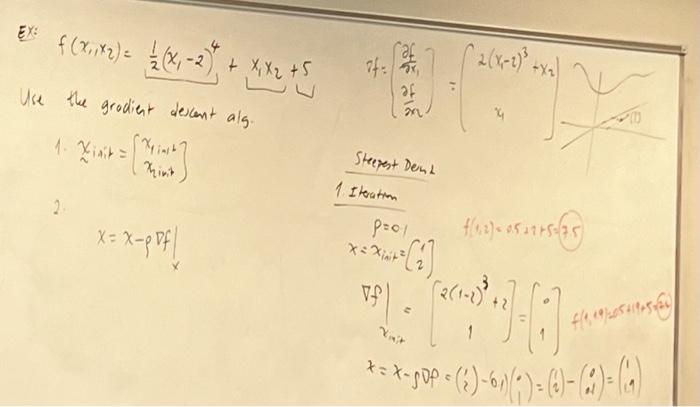 Ex:
f(x₁,x₂) = 1/2 (x₁-2)⁴ + x₁x₂ + 5
Use the gradient descent alg.
1. x init = [x₁ init
x₂ init]
2.
x = x - ρ ∇f|x
∇f = [∂f/∂x₁
∂f/∂x₂] = [2(x₁-2)³ + x₂
x₁]
Steepest
1. Iteration
ρ = 0.1
f(1,2) = 0.5 + 2 + 5 = 7.5
x = x init = [1
2]
∇f|x init = [2(1-2)³ + 2
1] = [0
1]
f(1,1.9) = 0.5 + 1.9 + 5 =
x = x - ρ∇f = (1
2) - (0.1)(0
1) = (1
2) - (0
0.1) = (1
1.9)